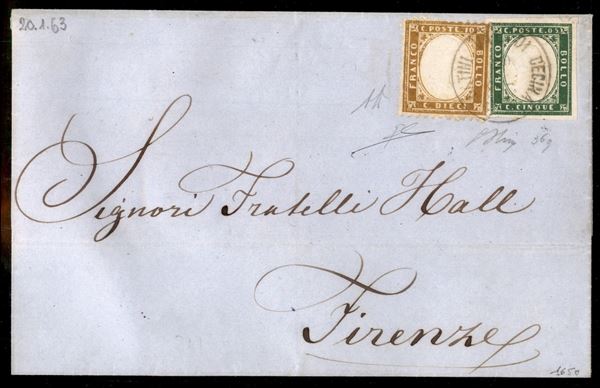 20.1.63
C. POSTE 10
FRANCO
BOLLO
C. DIECI
C. POSTE. 05
FRANCO
BOLLO
C. CINQUE
DI DECIM
Signori Fratelli Hall
Firenze
1650